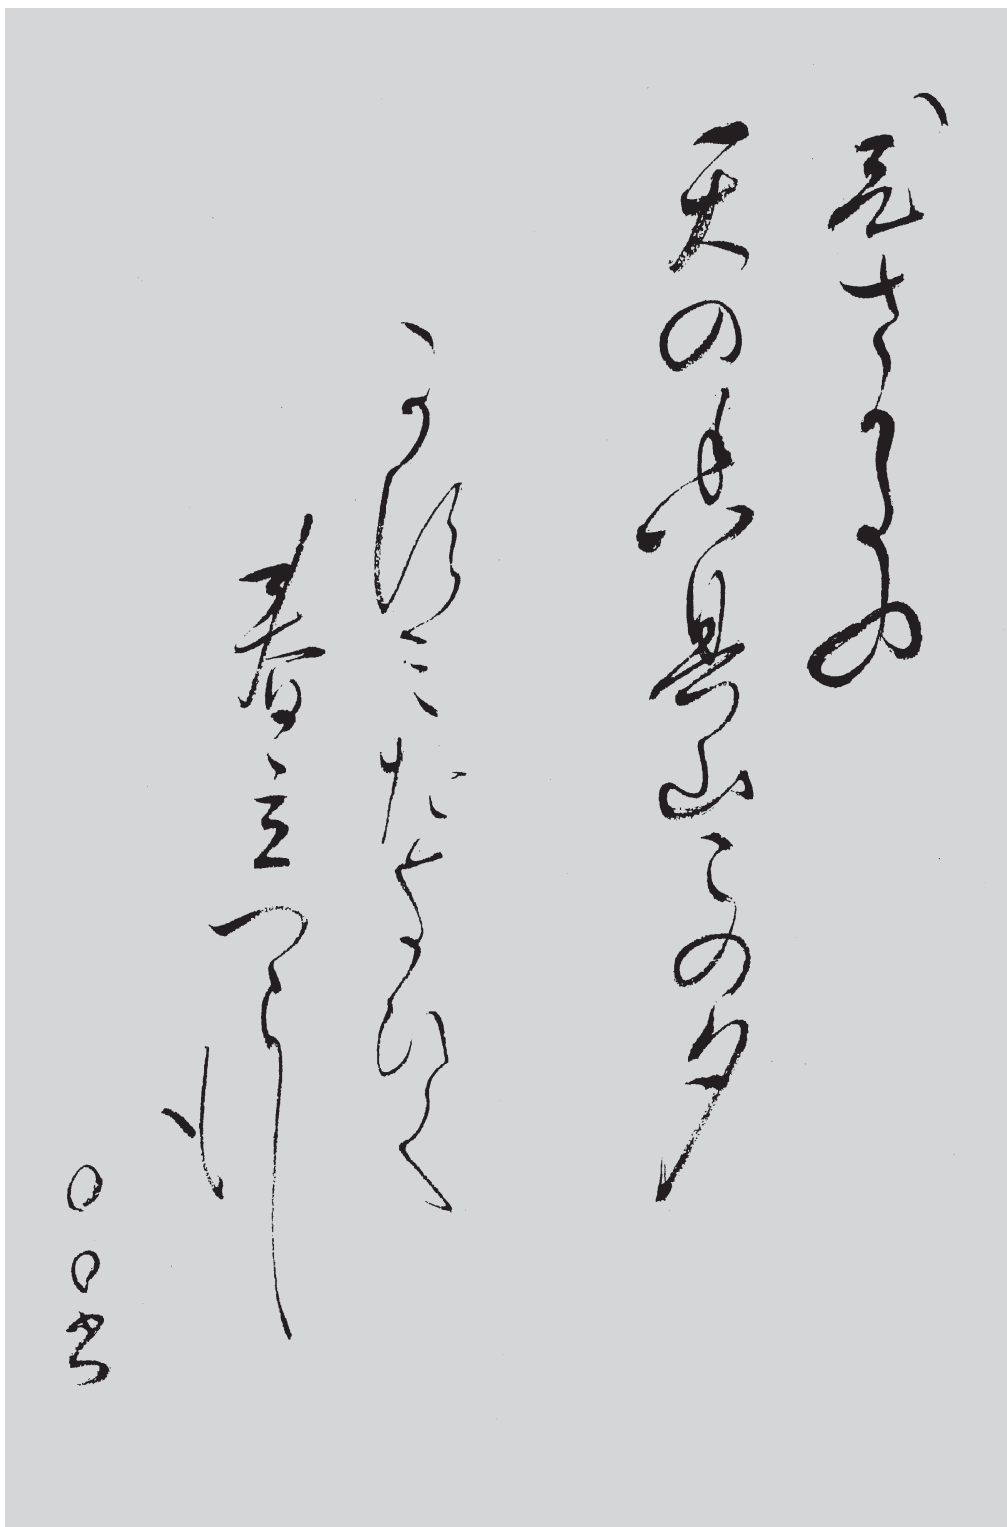 ひさかたの
天の香具山この夕
かすみたなひく
春立つらしも
〇〇書